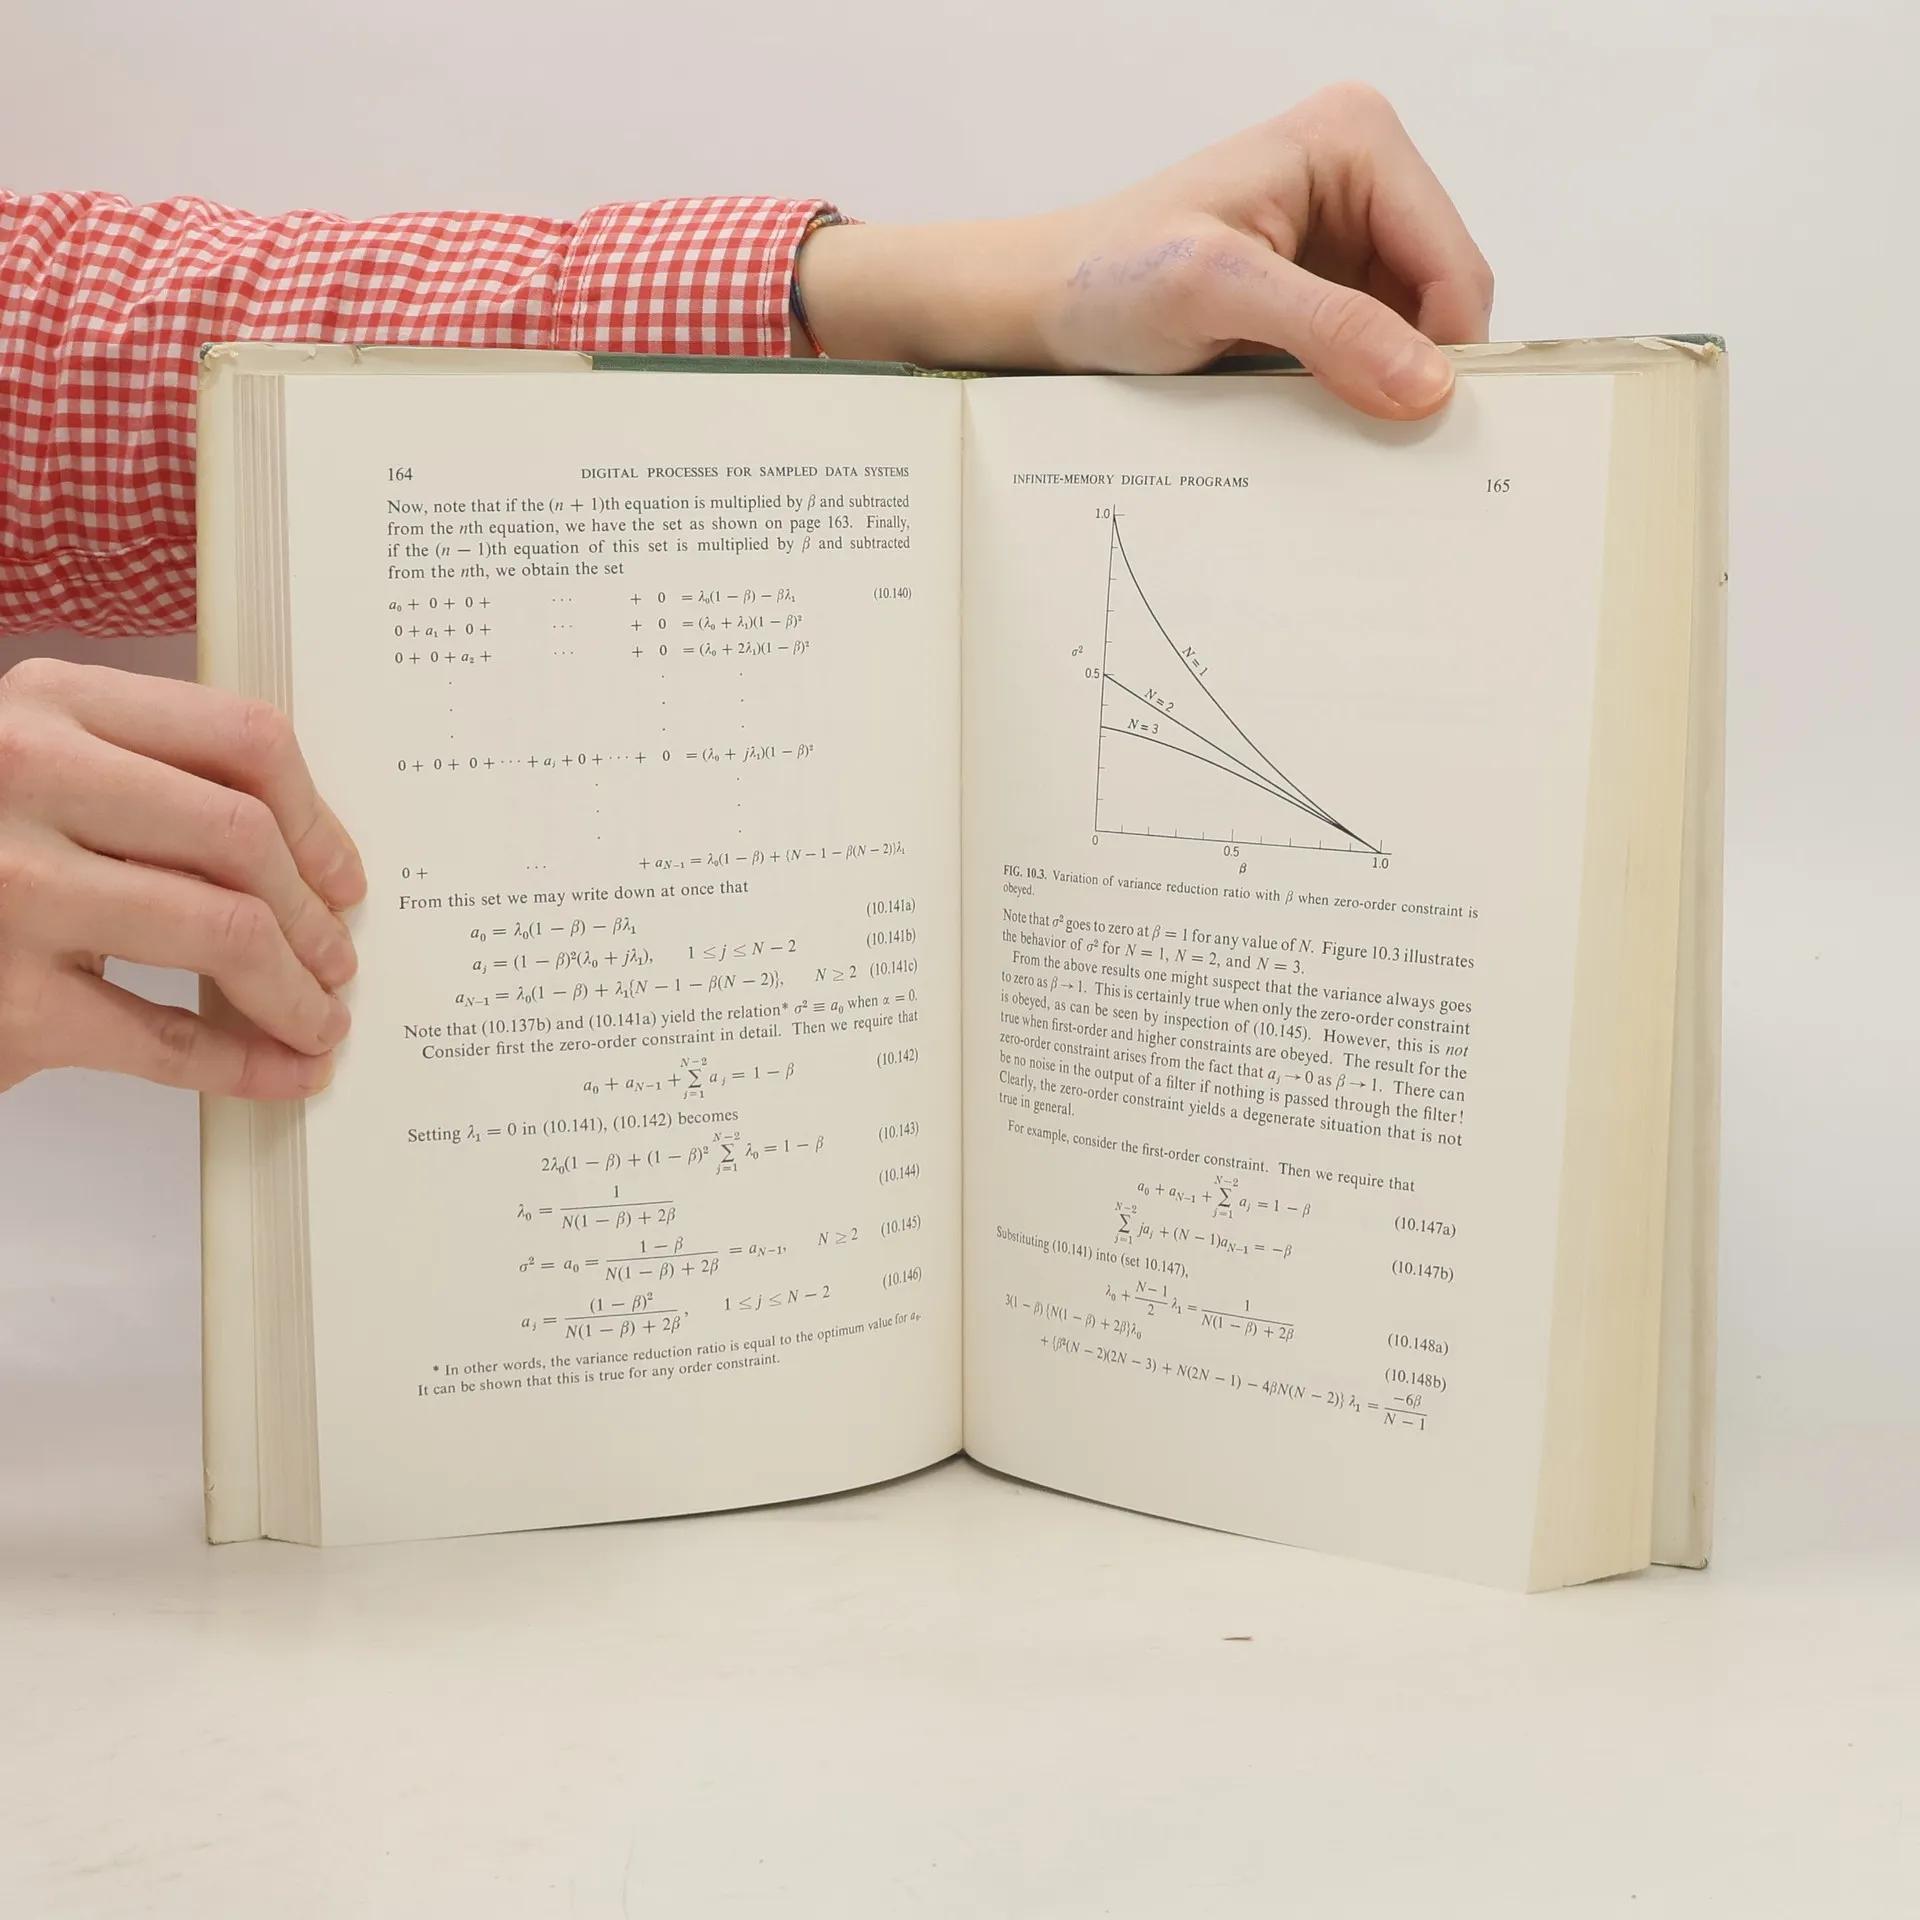 164 DIGITAL PROCESSES FOR SAMPLED DATA SYSTEMS
Now, note that if the (n + 1)th equation is multiplied by β and subtracted
from the nth equation, we have the set as shown on page 163. Finally,
if the (n − 1)th equation of this set is multiplied by β and subtracted
from the nth, we obtain the set
a₀ + 0 + 0 + ··· + 0 = λ₀(1 − β) − βλ₁ (10.140)
0 + a₁ + 0 + ··· + 0 = (λ₀ + λ₁)(1 − β)²
0 + 0 + a₂ + ··· + 0 = (λ₀ + 2λ₁)(1 − β)²
. . .
. . .
. . .
0 + 0 + 0 + ··· + aⱼ + 0 + ··· + 0 = (λ₀ + jλ₁)(1 − β)²
. .
. .
. .
0 + ··· + a_{N−1} = λ₀(1 − β) + {N − 1 − β(N − 2)}λ₁
From this set we may write down at once that
a₀ = λ₀(1 − β) − βλ₁ (10.141a)
aⱼ = (1 − β)²(λ₀ + jλ₁), 1 ≤ j ≤ N − 2 (10.141b)
a_{N−1} = λ₀(1 − β) + λ₁{N − 1 − β(N − 2)}, N ≥ 2 (10.141c)
Note that (10.137b) and (10.141a) yield the relation* σ² ≡ a₀ when α = 0.
Consider first the zero-order constraint in detail. Then we require that
a₀ + a_{N−1} + ∑_{j=1}^{N−2} aⱼ = 1 − β (10.142)
Setting λ₁ = 0 in (10.141), (10.142) becomes
2λ₀(1 − β) + (1 − β)² ∑_{j=1}^{N−2} λ₀ = 1 − β (10.143)
λ₀ = 1 / (N(1 − β) + 2β) (10.144)
σ² = a₀ = (1 − β) / (N(1 − β) + 2β) = a_{N−1}, N ≥ 2 (10.145)
aⱼ = (1 − β)² / (N(1 − β) + 2β), 1 ≤ j ≤ N − 2 (10.146)
* In other words, the variance reduction ratio is equal to the optimum value for a₀.
It can be shown that this is true for any order constraint.
INFINITE-MEMORY DIGITAL PROGRAMS 165
1.0
σ²
N = 1
0.5
N = 2
N = 3
0 0.5 1.0
β
FIG. 10.3. Variation of variance reduction ratio with β when zero-order constraint is
obeyed.
Note that σ² goes to zero at β = 1 for any value of N. Figure 10.3 illustrates
the behavior of σ² for N = 1, N = 2, and N = 3.
From the above results one might suspect that the variance always goes
to zero as β → 1. This is certainly true when only the zero-order constraint
is obeyed, as can be seen by inspection of (10.145). However, this is not
true when first-order and higher constraints are obeyed. The result for the
zero-order constraint arises from the fact that aⱼ → 0 as β → 1. There can
be no noise in the output of a filter if nothing is passed through the filter!
Clearly, the zero-order constraint yields a degenerate situation that is not
true in general.
For example, consider the first-order constraint. Then we require that
a₀ + a_{N−1} + ∑_{j=1}^{N−2} aⱼ = 1 − β (10.147a)
∑_{j=1}^{N−2} jaⱼ + (N − 1)a_{N−1} = −β (10.147b)
Substituting (10.141) into (set 10.147),
λ₀ + (N − 1)/2 λ₁ = 1 / (N(1 − β) + 2β) (10.148a)
3(1 − β){N(1 − β) + 2β}λ₀ (10.148b)
+ {β²(N − 2)(2N − 3) + N(2N − 1) − 4βN(N − 2)} λ₁ = −6β / (N − 1)